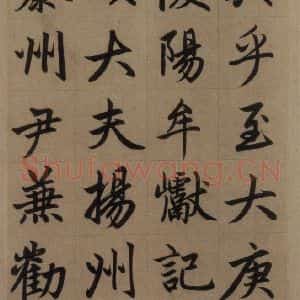 乎至大庚
陽牟巘記
大夫揚州
州尹兼勸
Shufawang.CN